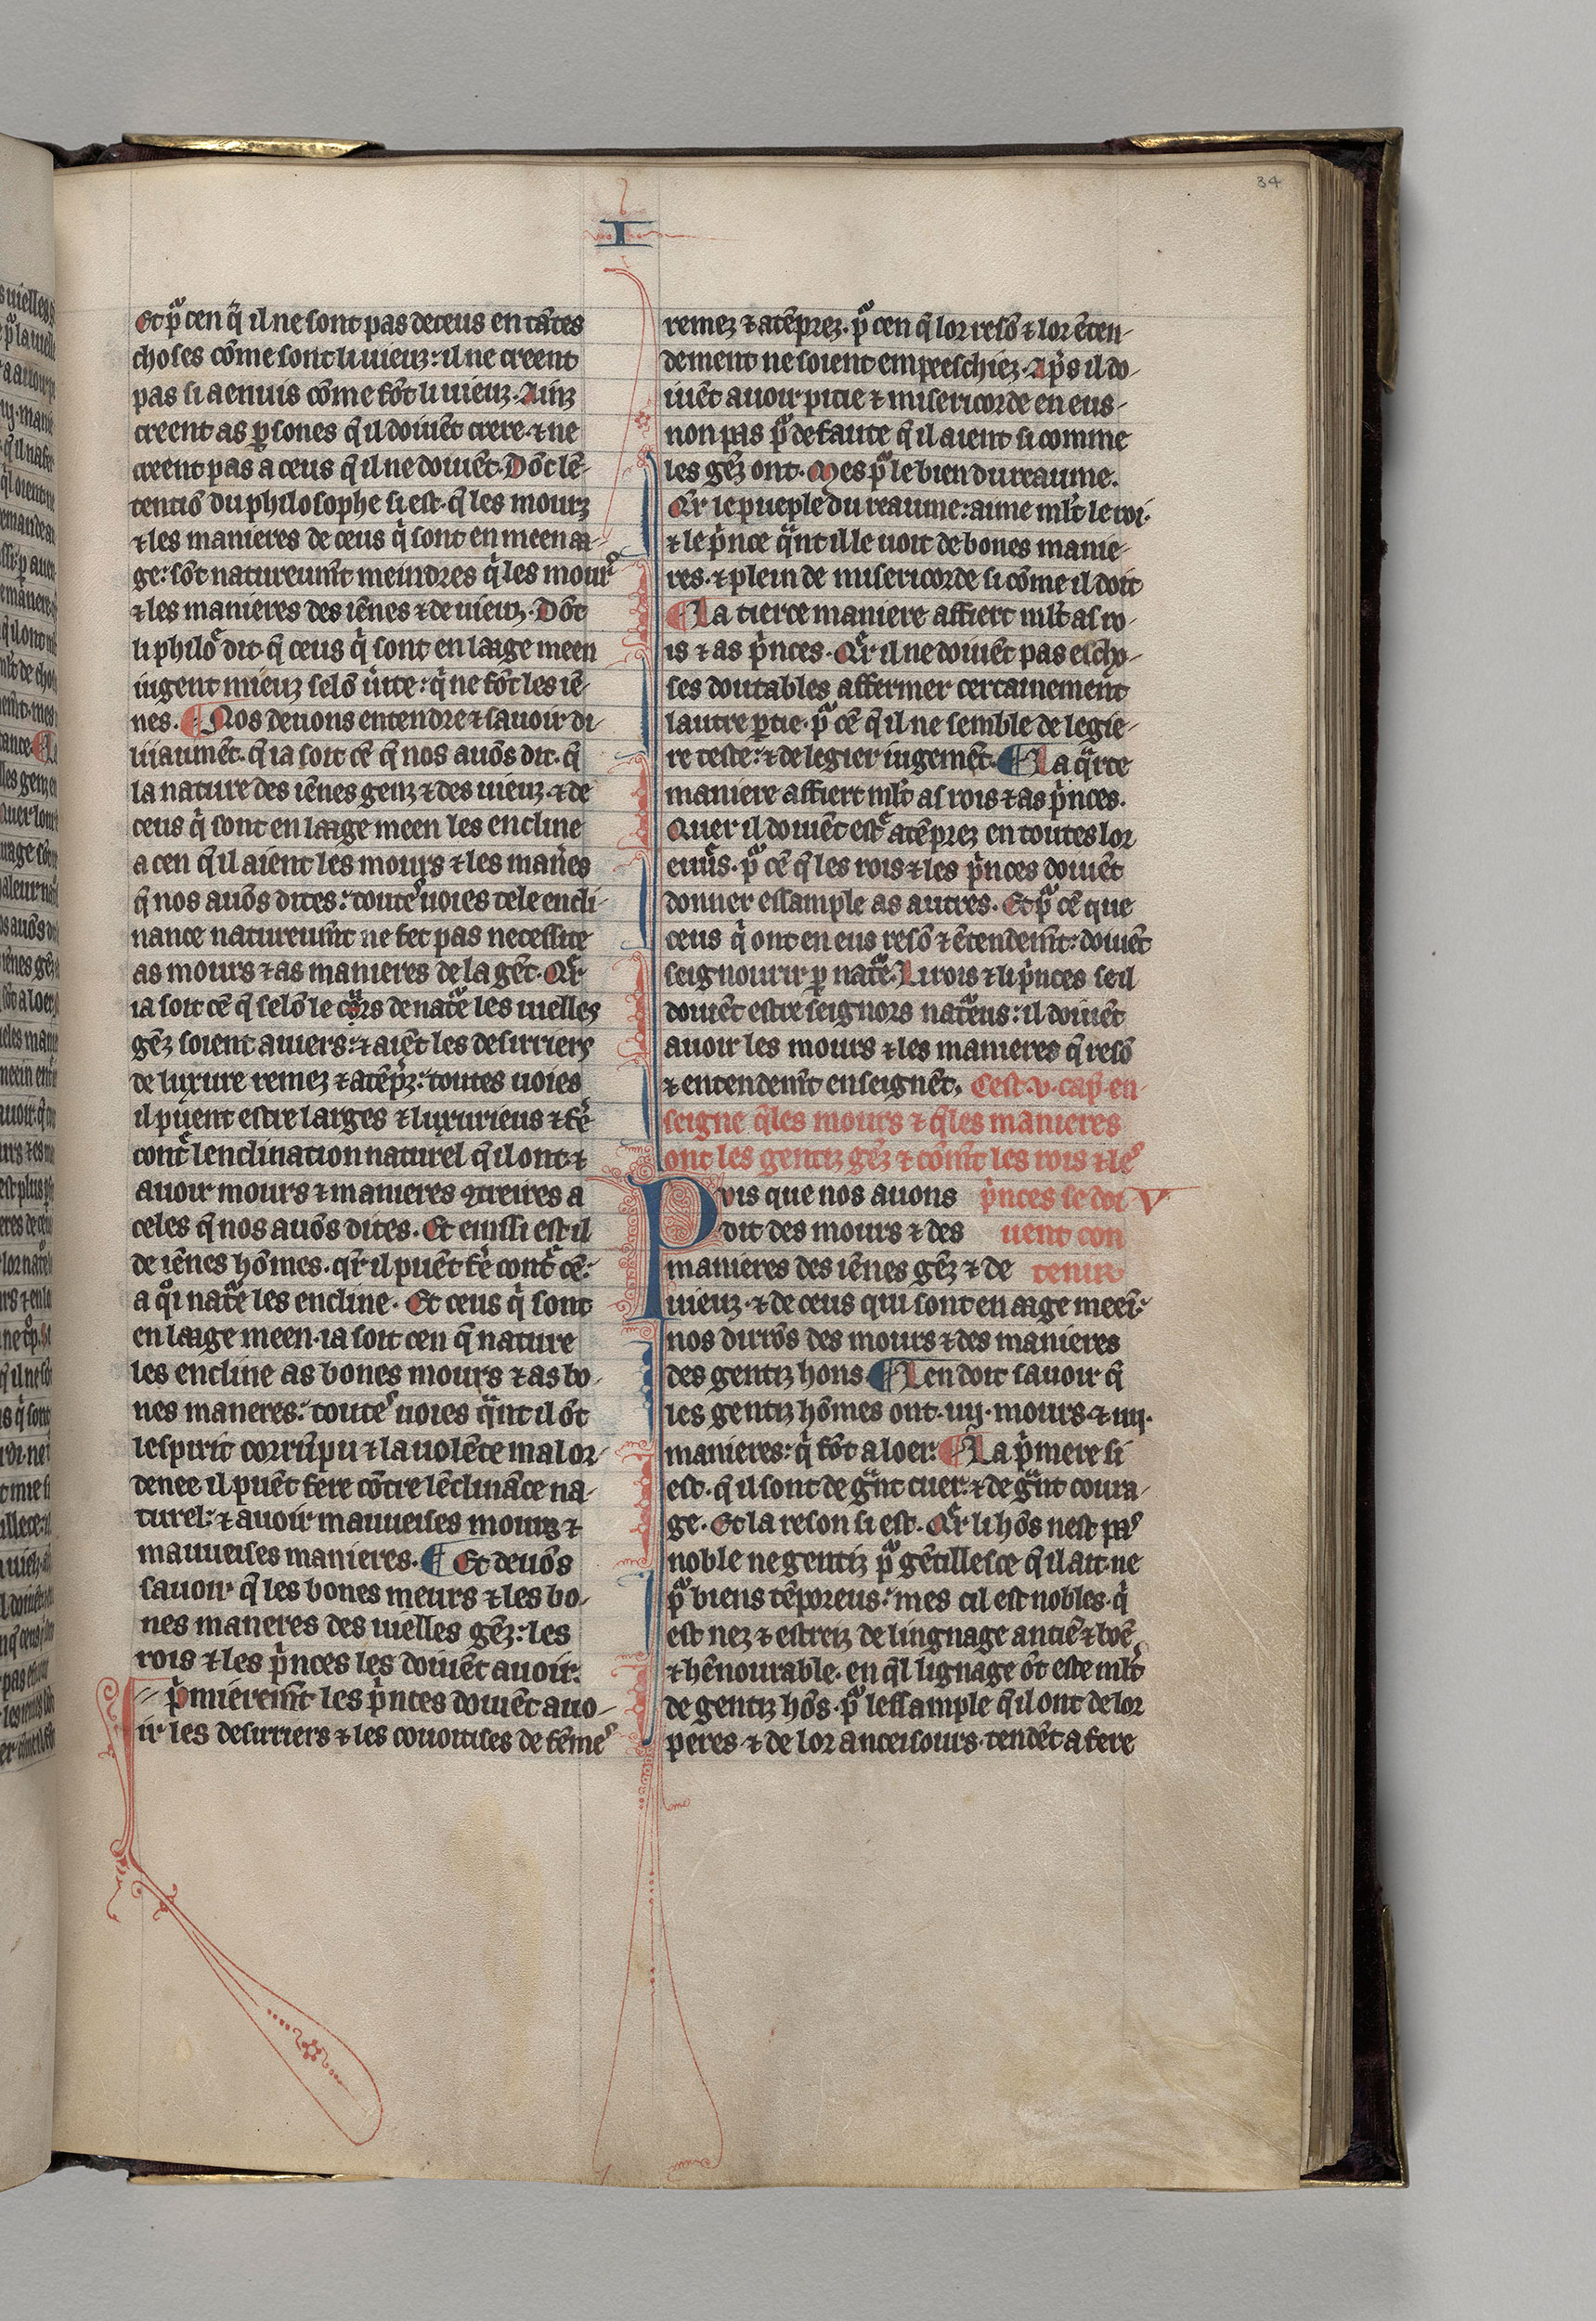 34
I
Et pͣ cen q̄ il ne sont pas deceus en tātes
choses cōme sont li uieuz: il ne creent
pas si a enuis cōme fōt li uieuz. Ainz
creent as ꝑsones q̄ il doiuēt crere. ⁊ ne
creent pas a ceus q̄ il ne doiuēt. Dōc lē-
tenciō du philosophe si est. q̄ les mourz
⁊ les manieres de ceus q̇ sont en meen aa-
ge: sōt natureum̄t meindres q̄ les mourˢ
⁊ les manieres des iēnes ⁊ de uieuz. Dōt
li philoͤ dit. q̄ ceus q̇ sont en laage meen
iugent mieuz selō uͥte: q̇ ne fōt les iē-
nes. ¶ Nos deuons entendre ⁊ sauoir di-
uiaumēt. q̄ ia soit cē q̄ nos auōs dit. q̄
la nature des iēnes genz ⁊ des uieuz. ⁊ de
ceus q̇ sont en laage meen les encline
a cen q̄ il aient les mours ⁊ les manͥes
q̄ nos auōs dites: touteˢ uoies tele encli-
nance natureum̄t ne fet pas necessite
as mours ⁊ as manieres de la gēt. Qͬr
ia soit cē q̄ selō le cours de natͬe les uielles
gēz soient auers: ⁊ aiēt les desirriers
de luxure remez ⁊ atēpͬz: toutes uoies
il puent estre larges ⁊ luxurieus ⁊ fͤe
contͤ lenclination naturel q̄ il ont ⁊
auoir mours ⁊ manieres ꝯtreires a
celes q̄ nos auōs dites. Et einssi est il
de iēnes hōmes. qͬr il puēt fͤe contͤ cē:
a qͦi natͬe les encline. Et ceus q̇ sont
en laage meen. ia soit cen q̄ nature
les encline as bones mours ⁊ as bo-
nes maneres: touteˢ uoies qͣnt il ōt
lespirit corrūpu ⁊ la uolēte mal or-
denee il puēt fere cōtre lēclināce na-
turel: ⁊ auoir mauueises mourz ⁊
mauueises manieres. ¶ Et deuōs
sauoir q̄ les bones meurs ⁊ les bo-
nes maneres des uielles gēz: les
rois ⁊ les pͥnces les doiuēt auoir.
pͥmierem̄t les pͥnces doiuēt auo-
ir les desirriers ⁊ les couoitises de fēmeˢ
remez ⁊ atēprez. pͣ cen q̄ lor resō ⁊ lor ētten-
dement ne soient empeeschiez. Apͥs il do-
iuēt auoir pitie ⁊ misericorde en eus-
non pas pͣ defaute q̄ il aient si comme
les gēz ont. Mes pͣ le bien du reaume.
Qͬr le pueple du reaume: aime ml̄t le roi.
⁊ le pͥnce qͣnt il le uoit de bones manie-
res. ⁊ plein de misericorde si cōme il doit
¶ La tierce maniere affiert ml̄t as ro-
is ⁊ as pͥnces. Qͬr il ne doiuēt pas es cho-
ses doutables affermer certainement
lautre ꝑtie. pͣ cē q̄ il ne semble de legie-
re teste: ⁊ de legier iugemēt. ¶ La qͣrte
maniere affiert ml̄t as rois ⁊ as pͥnces.
Quer il doiuēt estͤ atēprez en toutes lor
euuͤs. pͣ cē q̄ les rois ⁊ les pͥnces doiuēt
donner essample as autres. Et pͣ cē que
ceus q̇ ont en eus resō ⁊ ētendem̄t: doiuēt
seignourir ꝑ natͬe. Li rois ⁊ li pͥnces se il
doiuēt estre seignors natͬeus: il doiuēt
auoir les mours ⁊ les manieres q̄ resō
⁊ entendem̄t enseignēt. Cest. v. cap̄. en-
seigne q̄les mours ⁊ q̄les manieres
ont les gentiz gēz ⁊ cōm̄t les rois ⁊ leˢ
Puis que nos auons pͥnces se doi V
dit des mours ⁊ des uent con
manieres des iēnes gēz ⁊ de tenir
uieuz. ⁊ de ceus qui sont en aage meeī:
nos dirrōs des mours ⁊ des manieres
des gentiz hons ¶ Len doit sauoir q̄
les gentiz hōmes ont. iiij. mours. ⁊ iiij.
manieres: q̇ fōt a loer: ¶ La pͥmere si
est. q̄ il sont de gͣnt cuer: ⁊ de gͣnt coura-
ge. Et la reson si est. Qͬr li hōs nest paˢ
noble ne gentiz pͣ gētillesce q̄ il ait. ne
pͣ biens tēporeus: mes cil est nobles. q̇
est nez ⁊ estreiz de lingnage anciē ⁊ boē
⁊ hēnourable. en q̄l lignage ōt este ml̄t
de gentiz hōs. pͣ lessample q̄ il ont de lor
peres ⁊ de lor anceisours. tendēt a fere